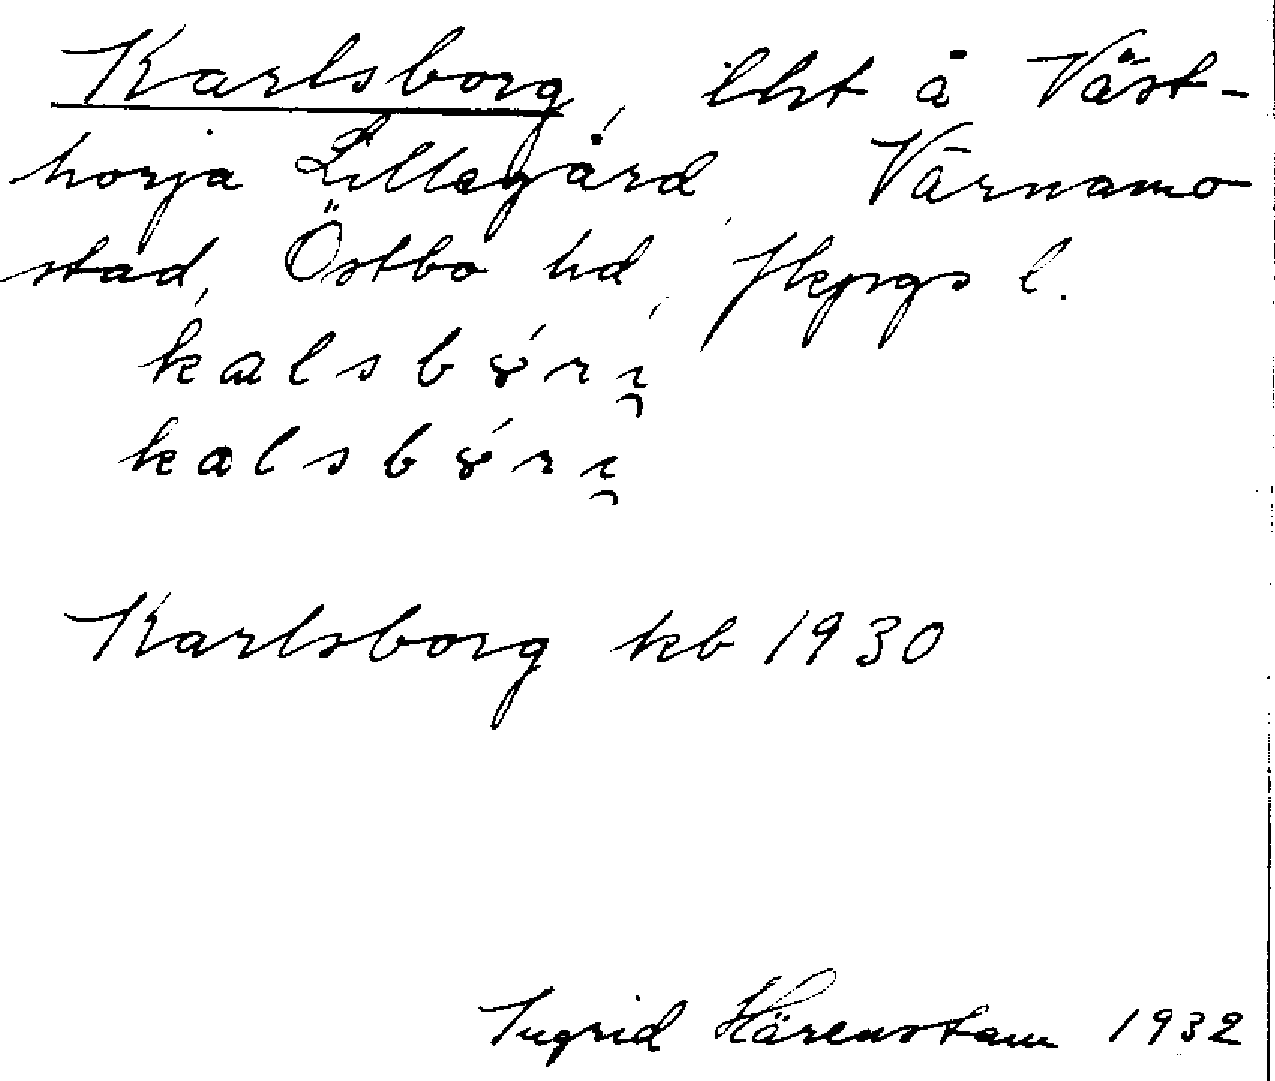 Karlsborg, lht å Väst-
horja Lillegård, Värnamo
stad, Östbo hd, Jkpgs l.
kalsbȣ́ri̯
kalsbȣ́ri̯
Karlsborg kb 1930
Ingrid Härenstam 1932